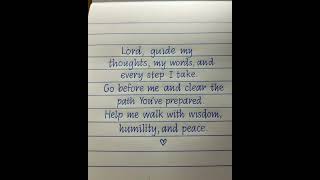 Lord, guide my
thoughts, my words, and
every step I take.
Go before me and clear the
path You've prepared.
Help me walk with wisdom,
humility, and peace.
♡